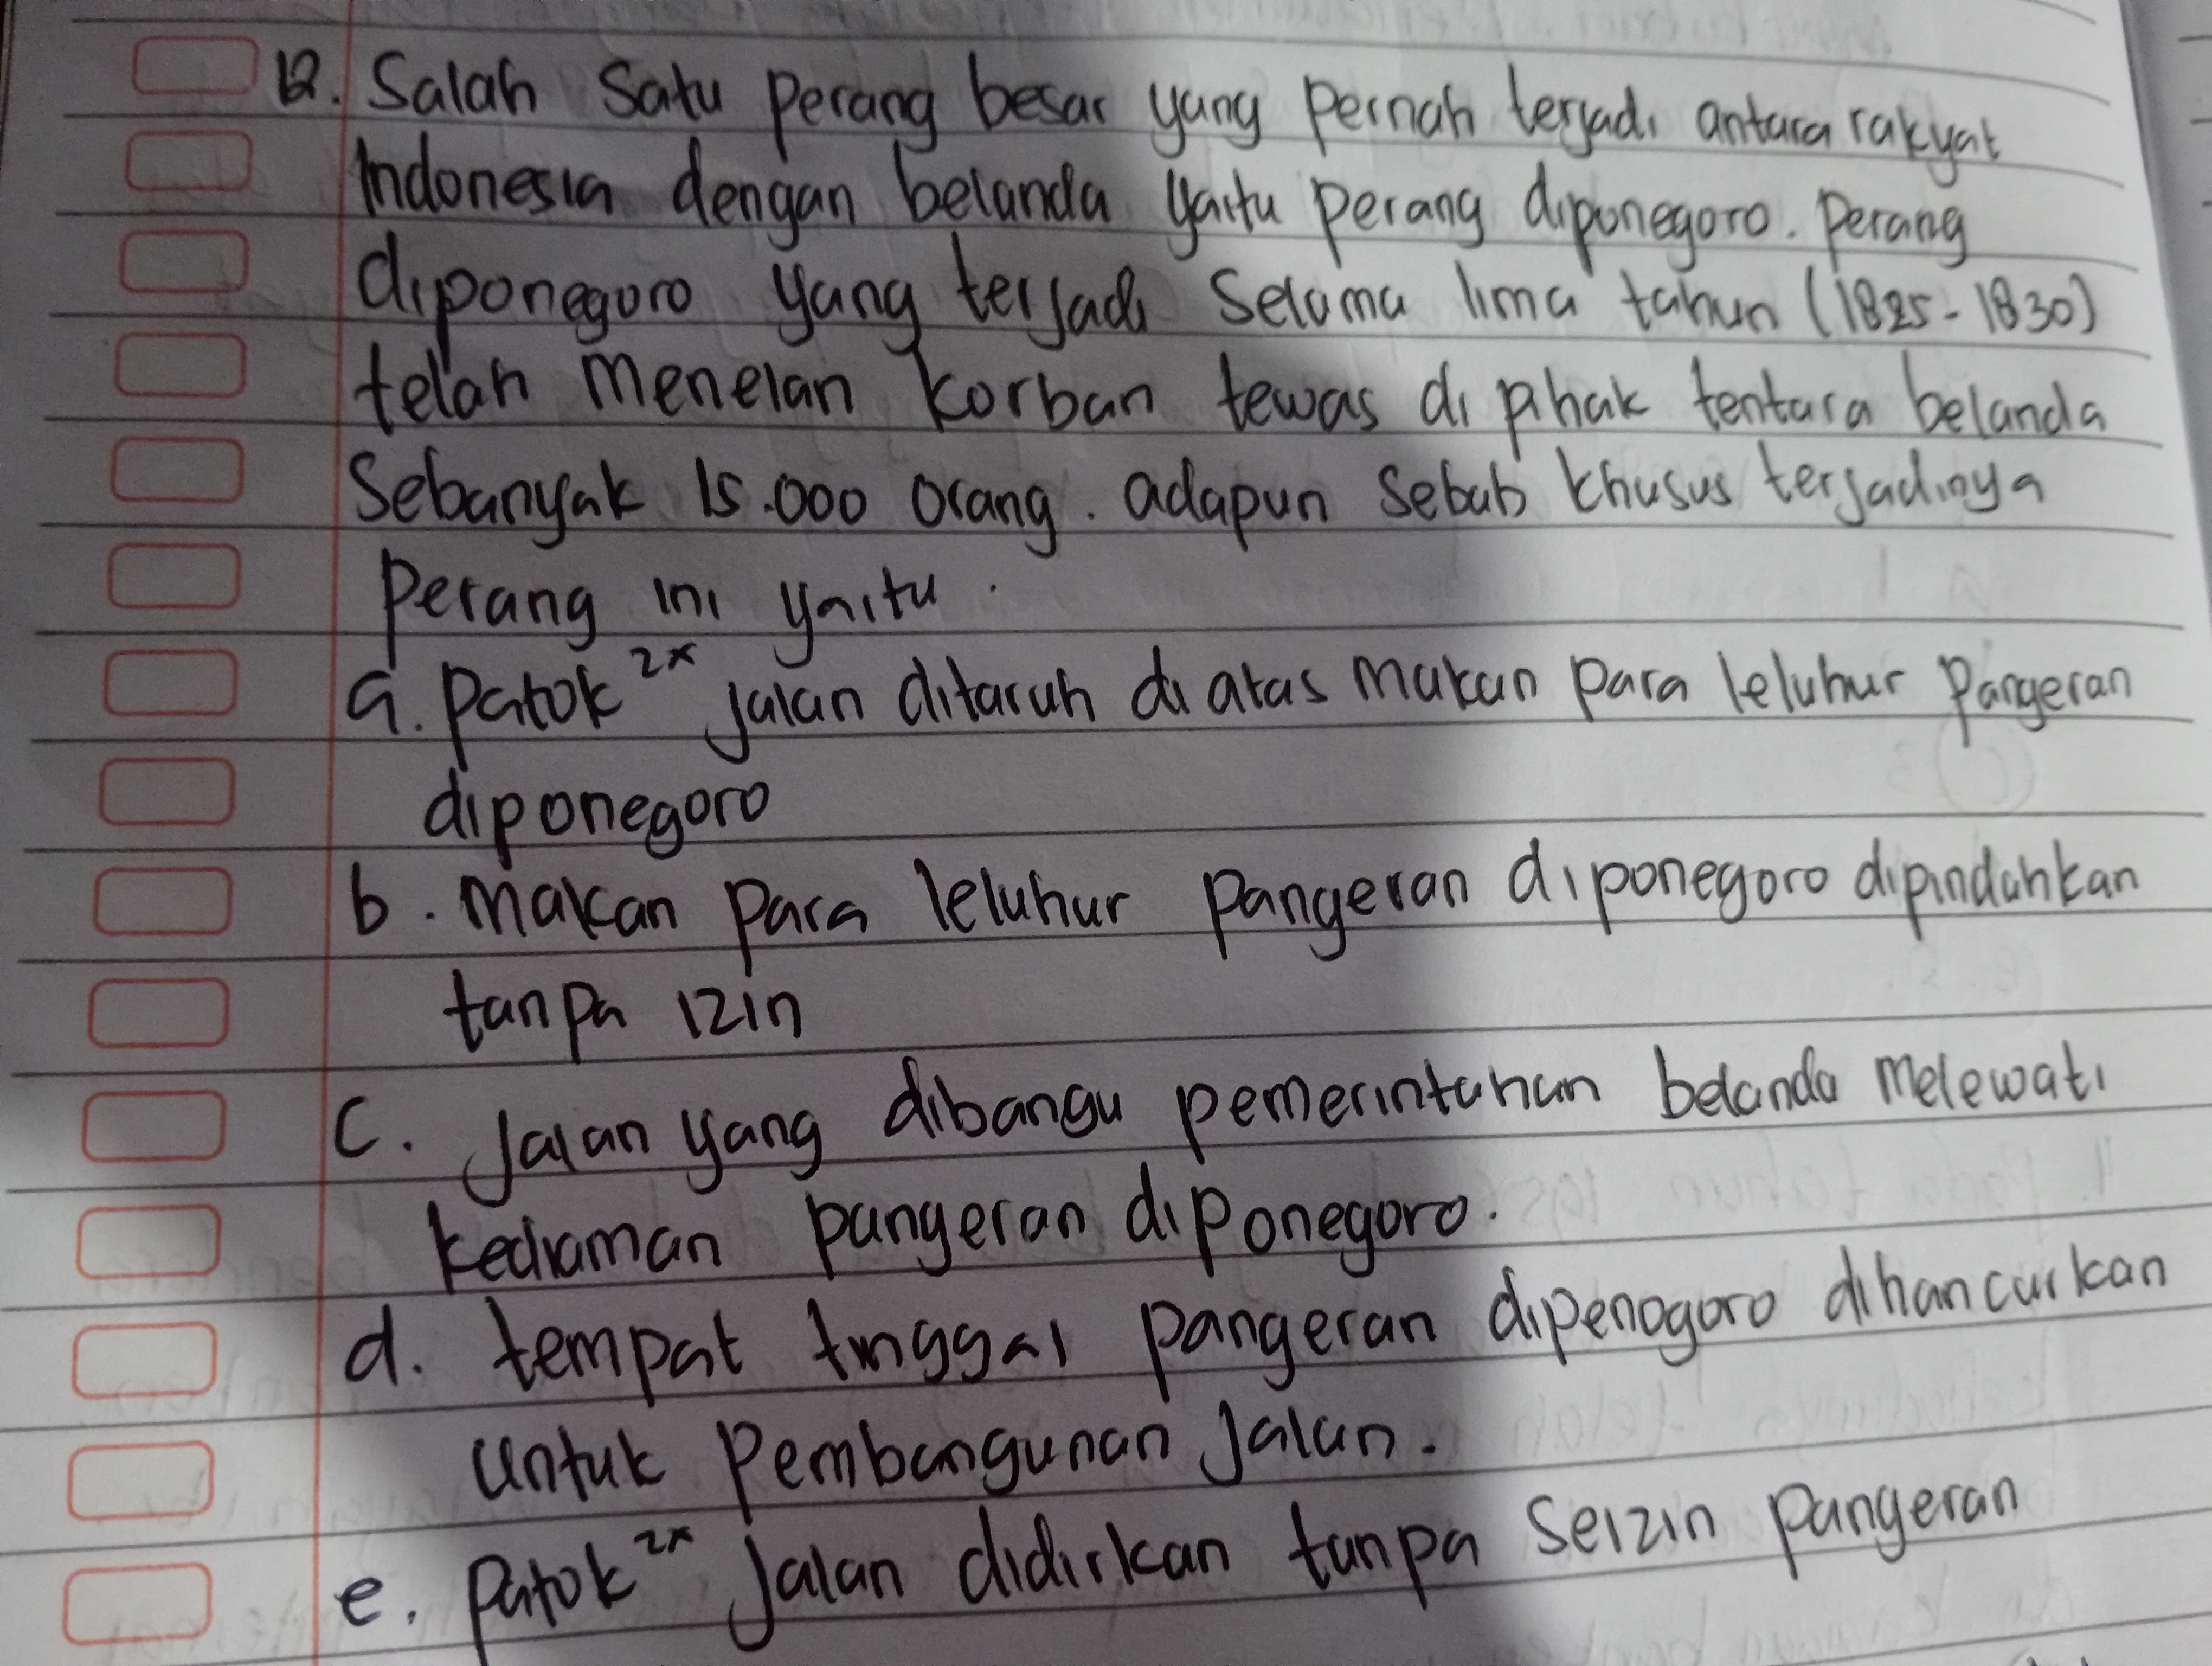 12. Salah Satu Perang besar yang pernah terjadi antara rakyat
Indonesia dengan belanda yaitu perang diponegoro. Perang
diponegoro yang terjadi Selama lima tahun (1825-1830)
telah menelan korban tewas di pihak tentara belanda
Sebanyak 15.000 orang. adapun Sebab khusus terjadinya
Perang ini yaitu.
a. Patok 2x jalan ditaruh di atas makan para leluhur Pangeran
diponegoro
b. makan para leluhur pangeran diponegoro dipindahkan
tanpa izin
c. Jalan yang dibangu pemerintahan belanda melewati
kediaman pangeran diponegoro.
d. tempat tinggal pangeran dipenogoro dihancurkan
untuk Pembangunan Jalan.
e. Patok 2x Jalan didirkan tanpa seizin pangeran